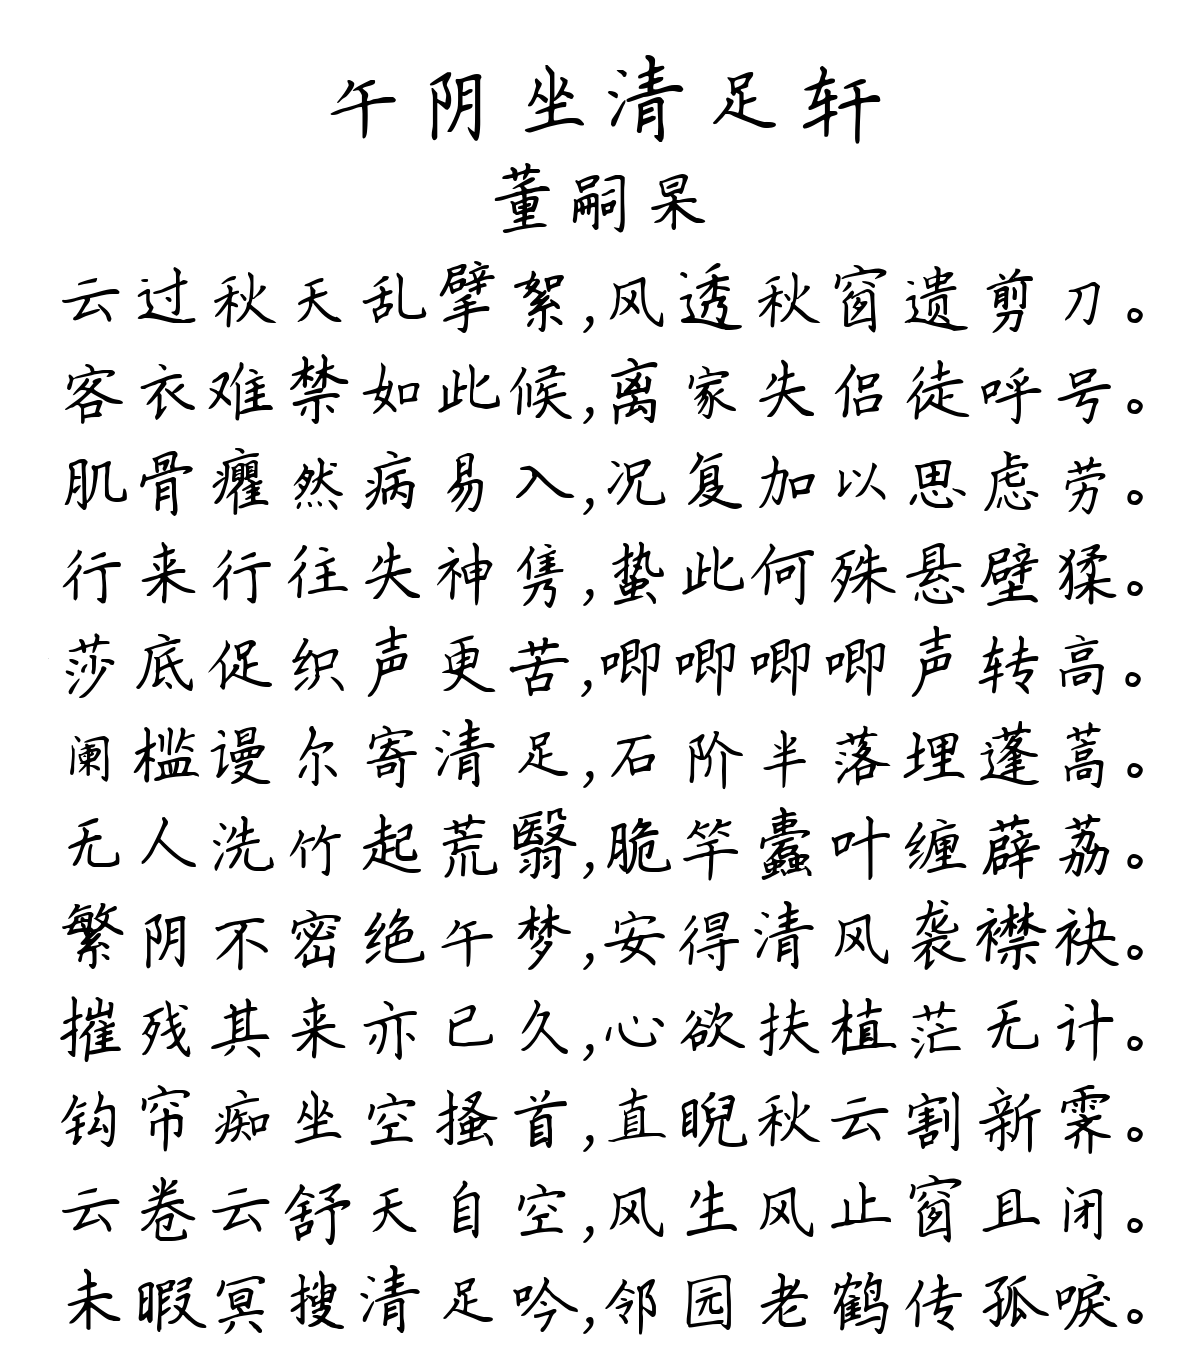 午阴坐清足轩
董嗣杲
云过秋天乱擘絮,风透秋窗遗剪刀。
客衣难禁如此候,离家失侣徒呼号。
肌骨癯然病易入,况复加以思虑劳。
行来行往失神隽,蛰此何殊悬壁猱。
莎底促织声更苦,唧唧唧唧声转高。
阑槛谩尔寄清足,石阶半落埋蓬蒿。
无人洗竹起荒翳,脆竿蠹叶缠薜荔。
繁阴不密绝午梦,安得清风袭襟袂。
摧残其来亦已久,心欲扶植茫无计。
钩帘痴坐空搔首,直睨秋云割新霁。
云卷云舒天自空,风生风止窗且闭。
未暇冥搜清足吟,邻园老鹤传孤唳。